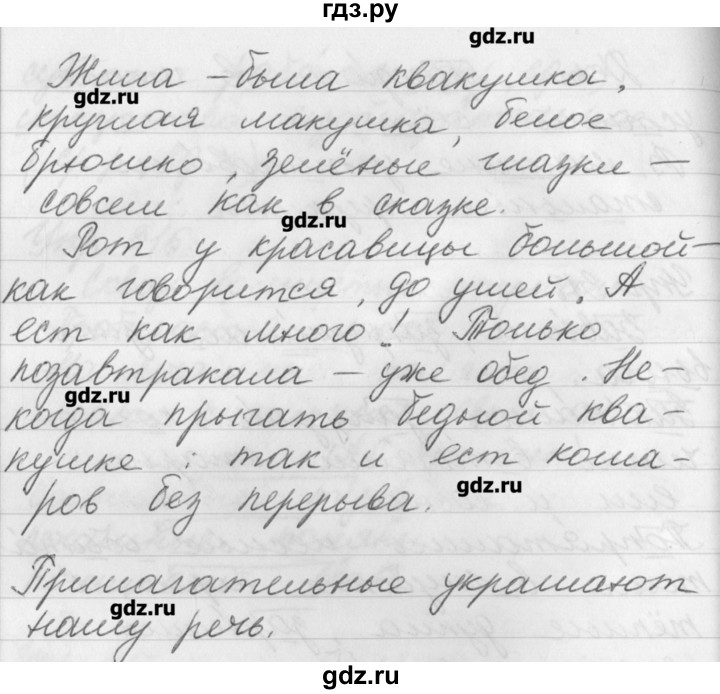 гдз.ру
gdz.ru
Жила – была квакушка,
gdz.ru
круглая макушка, белое
брюшко, зелёные глазки –
совсем как в сказке.
gdz.ru
Рот у красавицы большой –
как говорится, до ушей. А
ест как много! Только
позавтракала – уже обед. Не-
gdz.ru
когда прыгать бедной ква-
кушке: так и ест кома-
gdz.ru
ров без перерыва.
Прилагательные украшают
gdz.ru
нашу речь.
gdz.ru